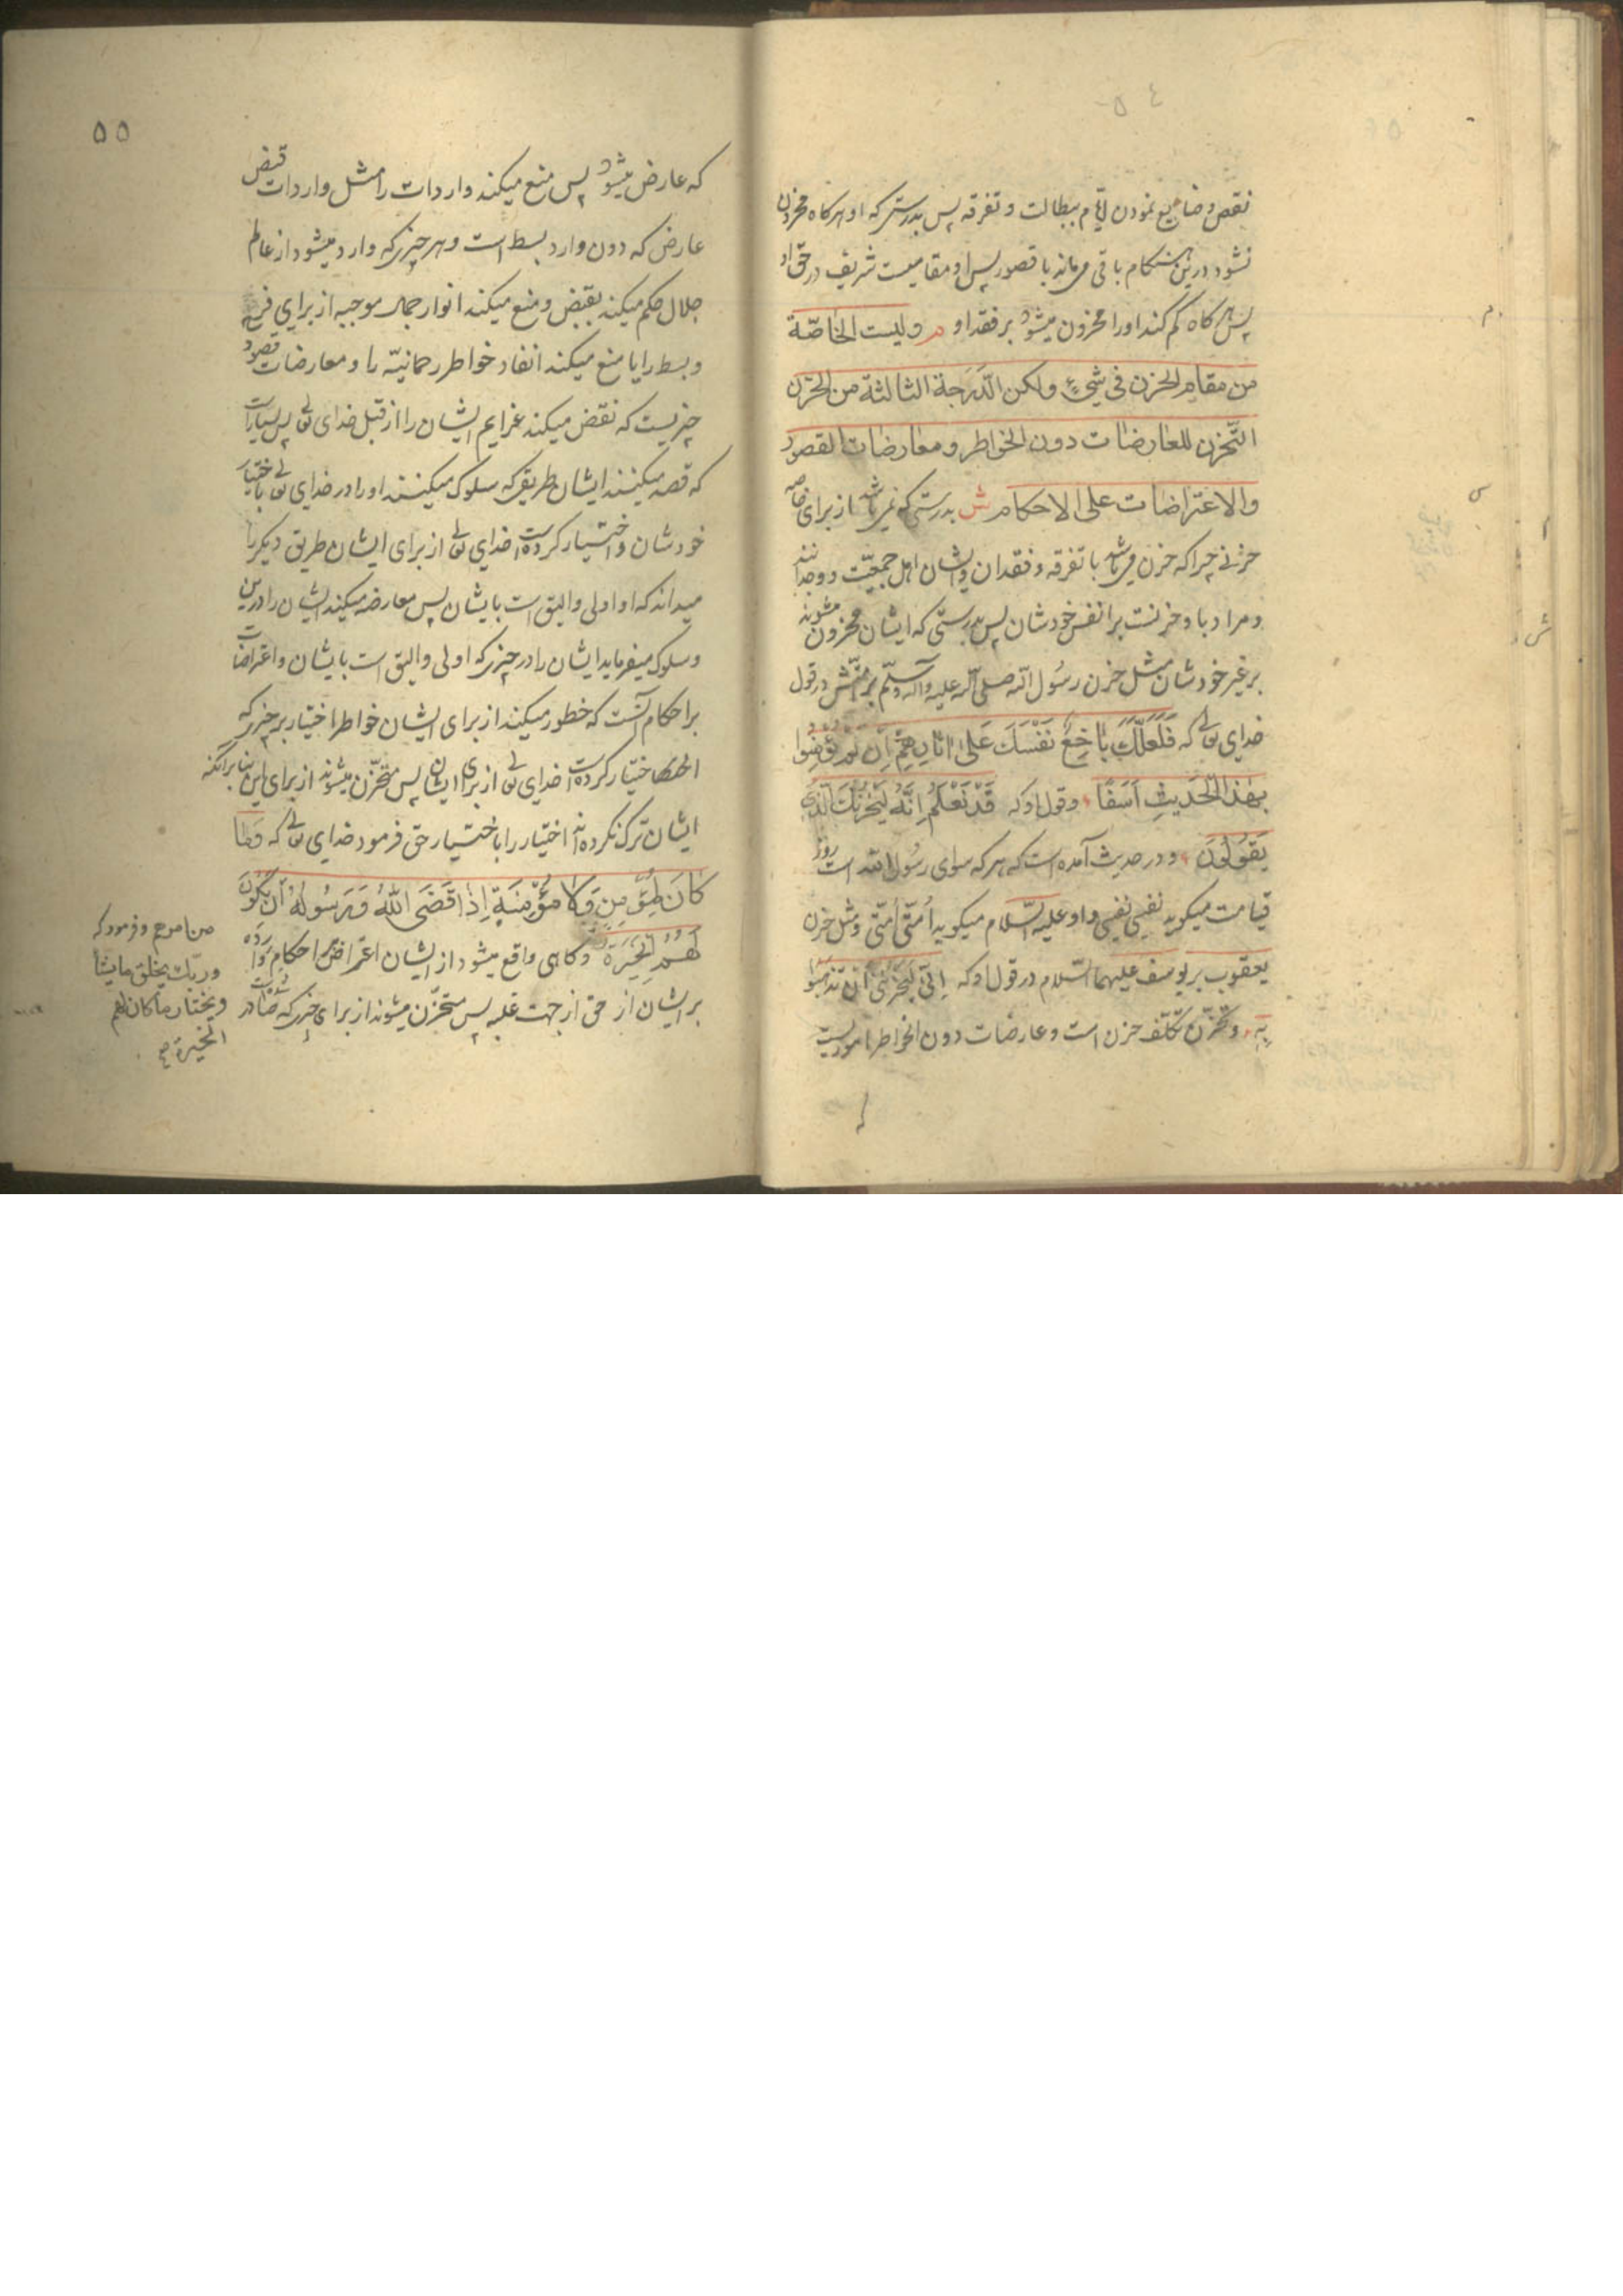 ٥٤
نقص و ضایع نمودن ایام ببطالت و تفرقه پس بدرستی که او هر کاه محزون
نشود درین هنکام باقی میماند با قصور پس او مقامیست شریف در حق او
پس هر کاه کم کند اورا محزون میشود بر فقد او م ولیست الخاصّة
من مقام الحزن فی شیءٍ ولکن الدّرَجة الثالثة من الحزن
التّحزن للعارضات دون الخواطر و معارضات القصود
والاعتراضات علی الاحکام ش بدرستی که نمی باشد از برای خاصه
حزنی چرا که حزن می باشد با تفرقه و فقدان و ایشان اهل جمعیّت و وجدانند
و مراد باو حزنست بر انفس خودشان پس بدرستی که ایشان محزون میشوند
بر غیر خودشان مثل حزن رسُول الله صلی الله علیه وآله وسلّم بر امّتش در قول
خدای تعالی که فَلَعَلَّكَ بَاخِعٌ نَفْسَكَ عَلی اثَارِهِمْ اِن لَمْ یُؤْمِنُوا
بِهٰذَا الْحَدیثِ اَسَفًا و قول او که قَدْ نَعْلَمُ اِنَّهُ لَیَحْزُنُكَ الَّذی
یَقُولُونَ و در حدیث آمده است که هر که سوای رسُول الله است روز
قیامت میکوید نفسی نفسی و او علیه السّلام میکوید اُمّتی اُمّتی و مثل حزن
یعقوب بر یوسف علیهما السّلام در قول او که اِنّی لَیَحْزُنُنی اَنْ تَذْهَبُوا
بِهِ و تحزّن تکلّف حزن است و عارضات دون الخواطر اموریست
٥٥
که عارض میشود پس منع میکند واردات را مثل واردات قبض
عارض که دون وارد بسط است و هر چیزی که وارد میشود از عالم
جلال حکم میکند بقبض و منع میکند انوار جمال موجبه از برای فرح
و بسط را یا منع میکند انفاد خواطر رحمانیّه را و معارضات قصود
چیزیست که نقض میکند عزایم ایشان را از قبل خدای تعالی پس بسیارست
که قصد میکنند ایشان طریقی که سلوک میکنند او را در خدای تعالی باختیار
خودشان و اختیار کرده است خدای تعالی از برای ایشان طریق دیکر را
میداند که او اولی و الیق است بایشان پس معارضه میکند ایشان را درین
و سلوک میفرماید ایشان را در چیزی که اولی و الیق است بایشان و اعتراضات
بر احکام آنست که خطور میکند از برای ایشان خواطر اختیار بر چیزی که
اختیار کرده است خدای تعالی از برای ایشان پس متحزّن میشوند از برای این بنا بر آنکه
ایشان ترک نکرده اند اختیار را باختیار حق فرمود خدای تعالی که وَمَا
کَانَ لِمُؤْمِنٍ وَلَا مُؤْمِنَةٍ اِذَا قَضَی اللّٰهُ وَرَسُولُهُ اَنْ یَکُونَ
لَهُمُ الْخِیَرَةُ و کاهی واقع میشود از ایشان اعتراض احکام وارده
بر ایشان از حق از جهت غلبه پس متحزّن میشوند از برای چیزی که صادر
من امرهم و فرمود که
وربّك یخلق ما یشا
ویختار ما کان لهم
الخیرة صح